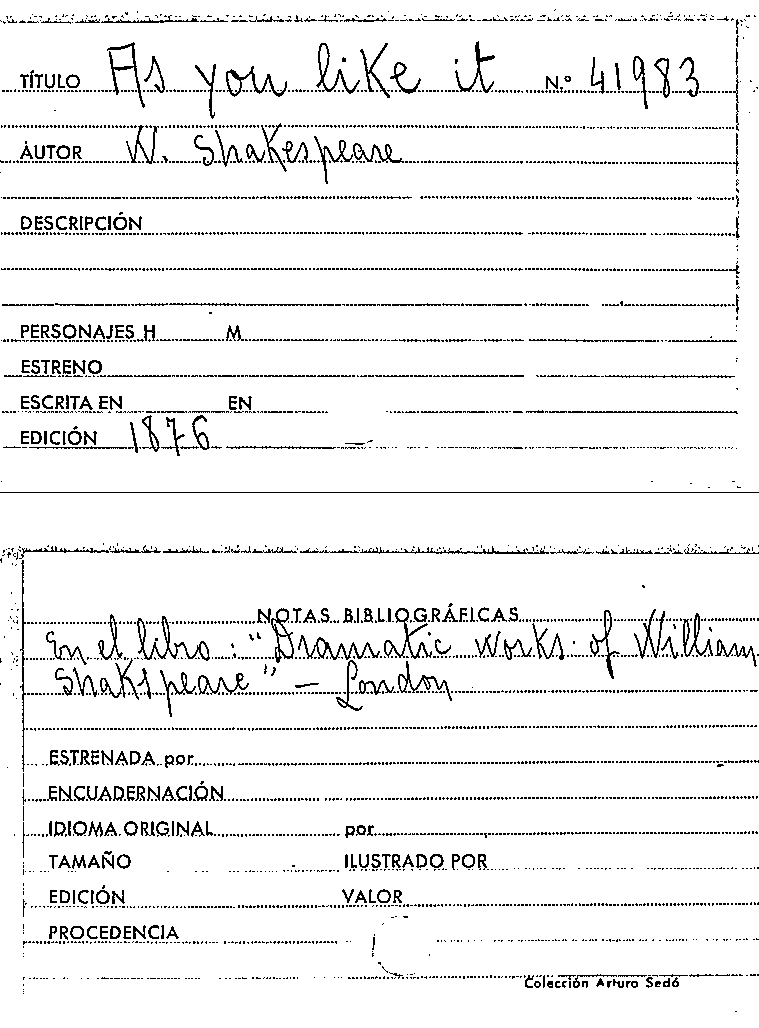 TÍTULO As you like it N.º 41983
AUTOR W. Shakespeare
DESCRIPCIÓN
PERSONAJES H M
ESTRENO
ESCRITA EN EN
EDICIÓN 1876
NOTAS BIBLIOGRÁFICAS
En el libro: "Dramatic works of William
Shakspeare" – London
ESTRENADA por
ENCUADERNACIÓN
IDIOMA ORIGINAL por
TAMAÑO ILUSTRADO POR
EDICIÓN VALOR
PROCEDENCIA
Colección Arturo Sedó